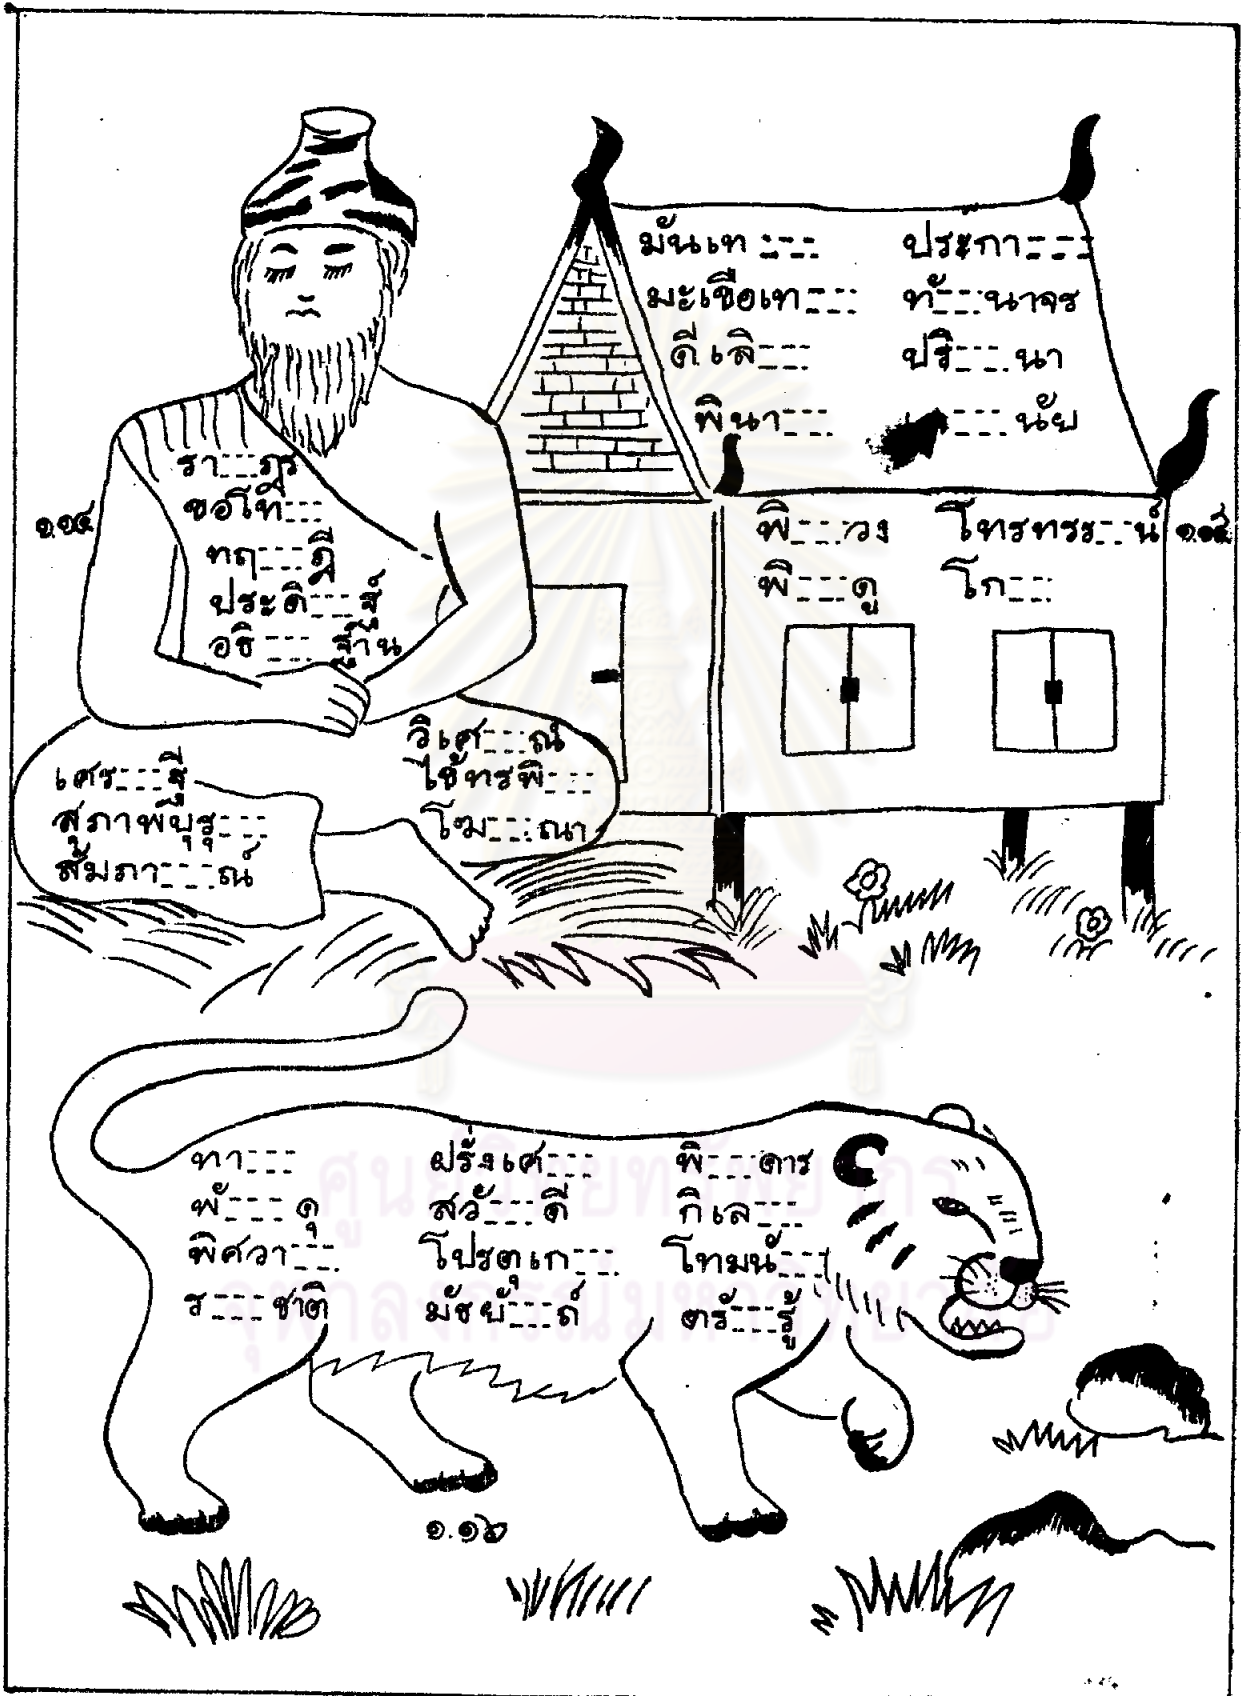 มันเท --- ประกา ---
มะเขือเท --- ทั --- นาจร
ดีเลิ --- ปริ --- นา
พินา --- --- นัย
รา --- ฎร
ขอโท ---
ทฤ --- ฎี
ประดิ --- ฐ์
อธิ --- ฐาน
๑.๑๔
พิ --- วง โทรทรร --- น์ ๑.๑๕
พิ --- ดู โก ---
วิเศ --- ณ์
ไข้ทรพิ ---
โฆ --- ณา
เศร --- ฐี
สุภาพบุรุ ---
สัมภา --- ณ์
ทา --- ฝรั่งเศ --- พิ --- ดาร
พั --- ดุ สวั --- ดี กิเล ---
พิศวา --- โปรตุเก --- โทมนั ---
ร --- ชาติ มัธยั --- ถ์ ตรั --- รู้
๑.๑๖
ศูนย์วิทยทรัพยากร
จุฬาลงกรณ์มหาวิทยาลัย